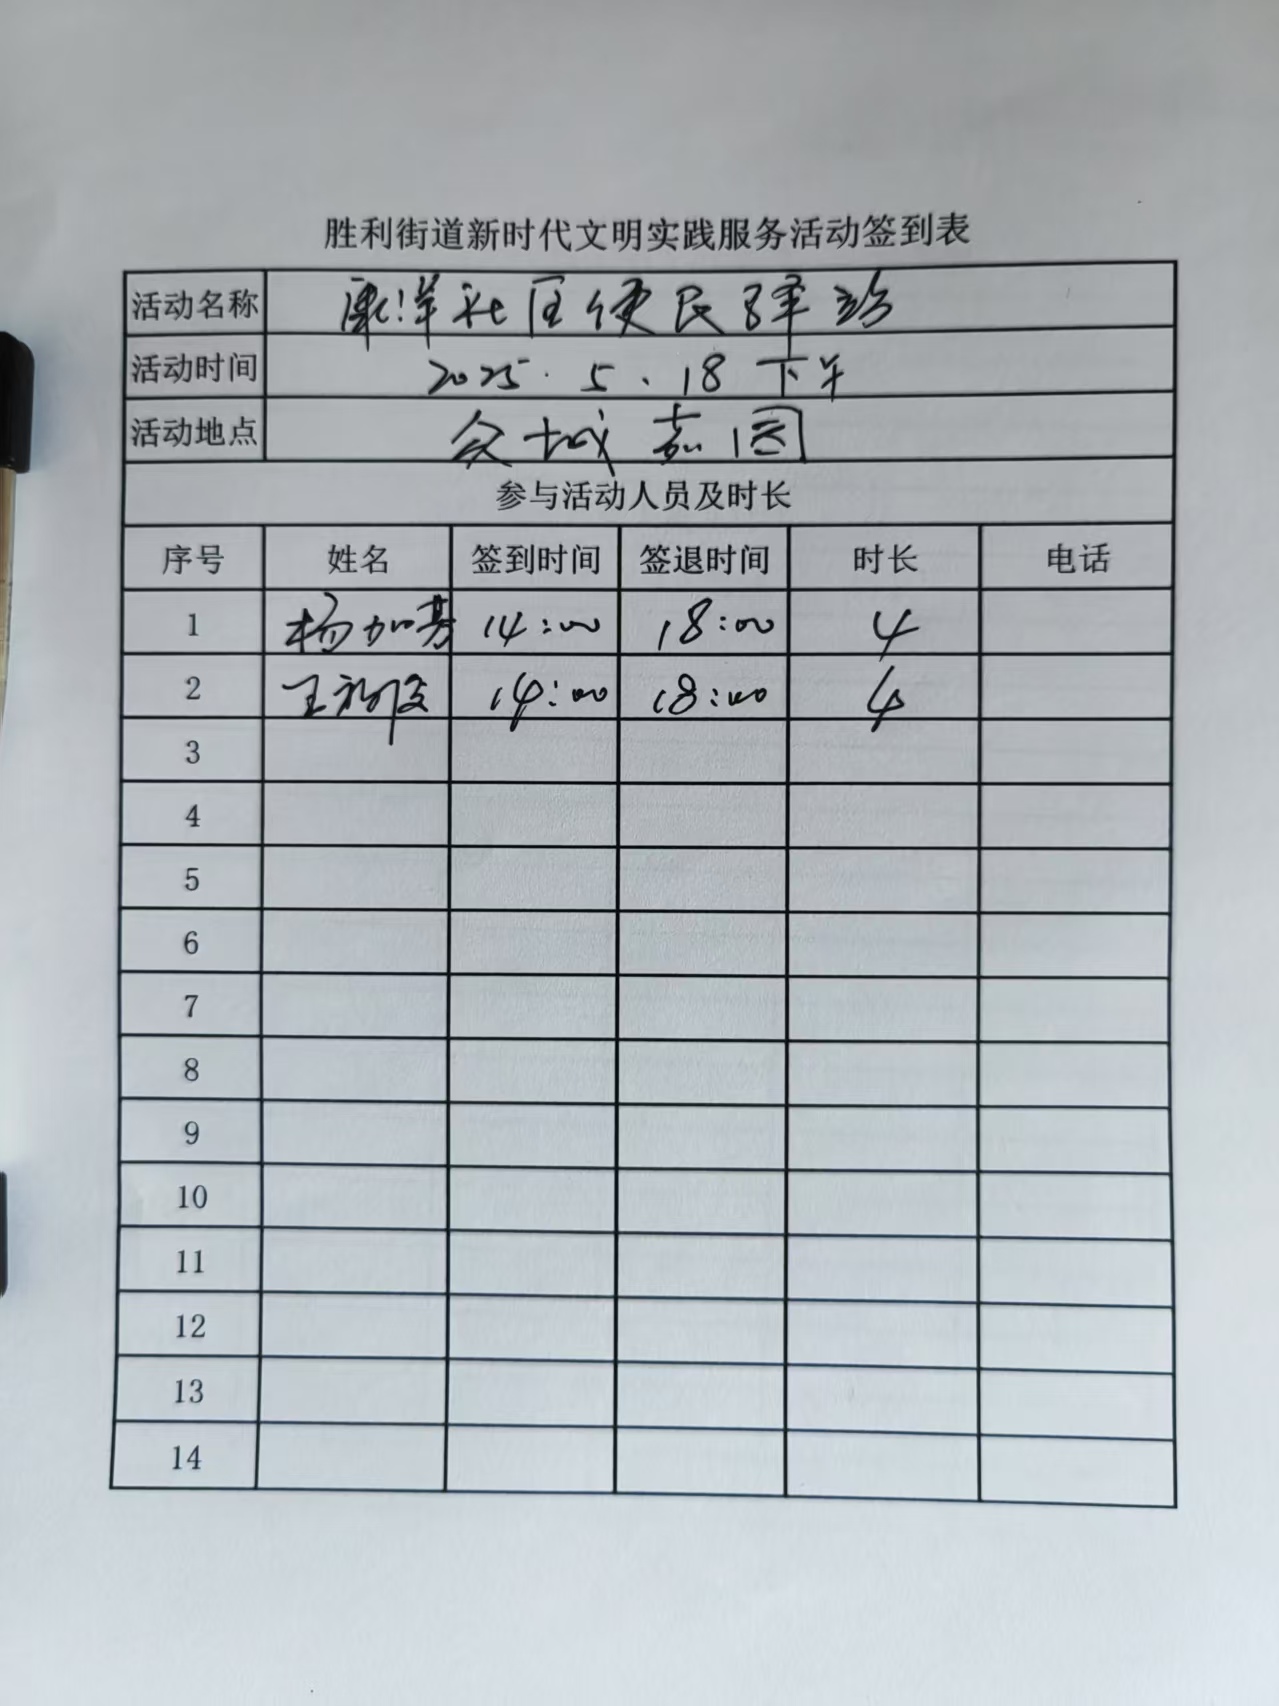 胜利街道新时代文明实践服务活动签到表
活动名称 康洋社区便民驿站
活动时间 2025.5.18 下午
活动地点 众城嘉园
参与活动人员及时长
序号 姓名 签到时间 签退时间 时长 电话
1 杨加芳 14:00 18:00 4
2 王 14:00 18:00 4
3
4
5
6
7
8
9
10
11
12
13
14